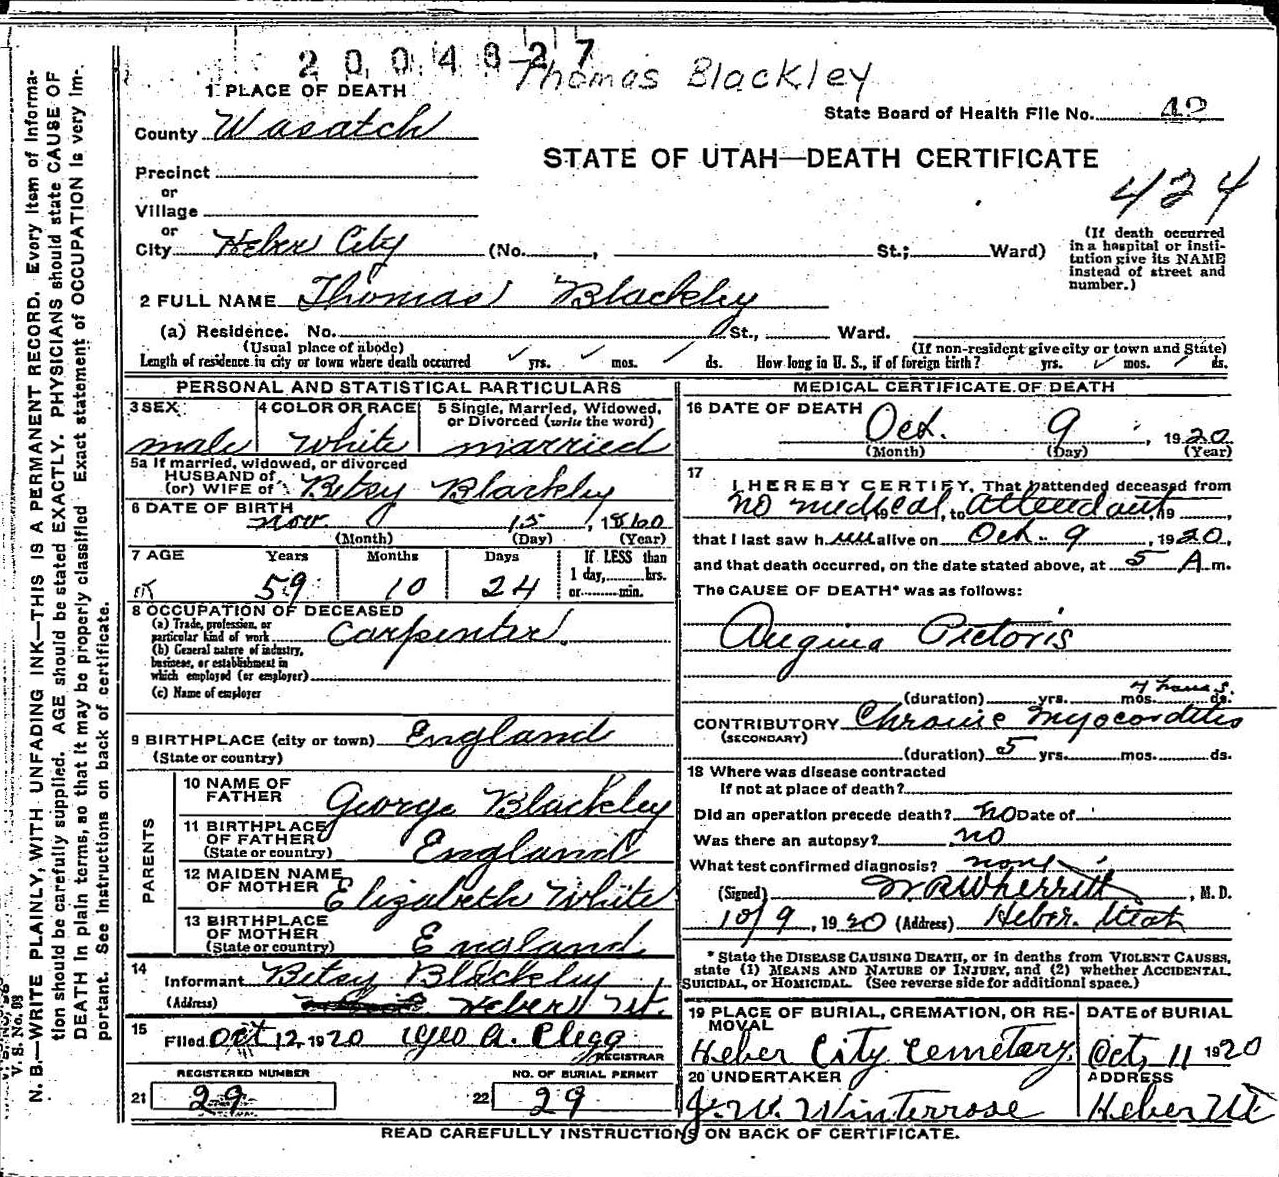 2004827
Thomas Blackley
1 PLACE OF DEATH
State Board of Health File No. 42
County Wasatch
STATE OF UTAH—DEATH CERTIFICATE
Precinct
424
or
Village
or
City Heber City (No. , St.; Ward)
(If death occurred in a hospital or insti-
tution give its NAME
instead of street and
number.)
2 FULL NAME Thomas Blackley
(a) Residence. No. St., Ward.
(Usual place of abode) (If non-resident give city or town and State)
Length of residence in city or town where death occurred yrs. mos. ds. How long in U. S., if of foreign birth? yrs. mos. ds.
PERSONAL AND STATISTICAL PARTICULARS
3 SEX 4 COLOR OR RACE 5 Single, Married, Widowed,
or Divorced (write the word)
male White married
5a If married, widowed, or divorced
HUSBAND of
(or) WIFE of Betsy Blackley
6 DATE OF BIRTH
Nov. 15, 1860
(Month) (Day) (Year)
7 AGE Years Months Days If LESS than
1 day, hrs.
or min.
59 10 24
8 OCCUPATION OF DECEASED
(a) Trade, profession, or
particular kind of work Carpenter
(b) General nature of industry,
business, or establishment in
which employed (or employer)
(c) Name of employer
9 BIRTHPLACE (city or town) England
(State or country)
PARENTS
10 NAME OF
FATHER George Blackley
11 BIRTHPLACE
OF FATHER
(State or country) England
12 MAIDEN NAME
OF MOTHER Elizabeth White
13 BIRTHPLACE
OF MOTHER
(State or country) England
14
Informant Betsy Blackley
(Address) Heber Ut.
15
Filed Oct 12, 1920 Geo A. Clegg
REGISTRAR
REGISTERED NUMBER NO. OF BURIAL PERMIT
21 29 22 29
MEDICAL CERTIFICATE OF DEATH
16 DATE OF DEATH
Oct. 9, 1920
(Month) (Day) (Year)
17
I HEREBY CERTIFY, That I attended deceased from
no medical attendant, 19 , to , 19 ,
that I last saw h alive on Oct. 9, 1920,
and that death occurred, on the date stated above, at 5 A m.
The CAUSE OF DEATH* was as follows:
Angina Pictoris
(duration) yrs. mos. 4 hours. ds.
CONTRIBUTORY Chronic Myocorditis
(SECONDARY)
(duration) 5 yrs. mos. ds.
18 Where was disease contracted
If not at place of death?
Did an operation precede death? no Date of
Was there an autopsy? no
What test confirmed diagnosis? none
(Signed) W R Wherritt, M. D.
10/9, 1920 (Address) Heber. Utah
* State the DISEASE CAUSING DEATH, or in deaths from VIOLENT CAUSES,
state (1) MEANS AND NATURE OF INJURY, and (2) whether ACCIDENTAL,
SUICIDAL, or HOMICIDAL. (See reverse side for additional space.)
19 PLACE OF BURIAL, CREMATION, OR RE-
MOVAL DATE of BURIAL
Heber City Cemetary. Oct, 11 1920
20 UNDERTAKER ADDRESS
J. W. Winterrose Heber Ut
READ CAREFULLY INSTRUCTIONS ON BACK OF CERTIFICATE.
V. S. No. 08
N. B.—WRITE PLAINLY, WITH UNFADING INK—THIS IS A PERMANENT RECORD. Every item of informa-
tion should be carefully supplied. AGE should be stated EXACTLY. PHYSICIANS should state CAUSE OF
DEATH in plain terms, so that it may be properly classified. Exact statement of OCCUPATION is very im-
portant. See instructions on back of certificate.